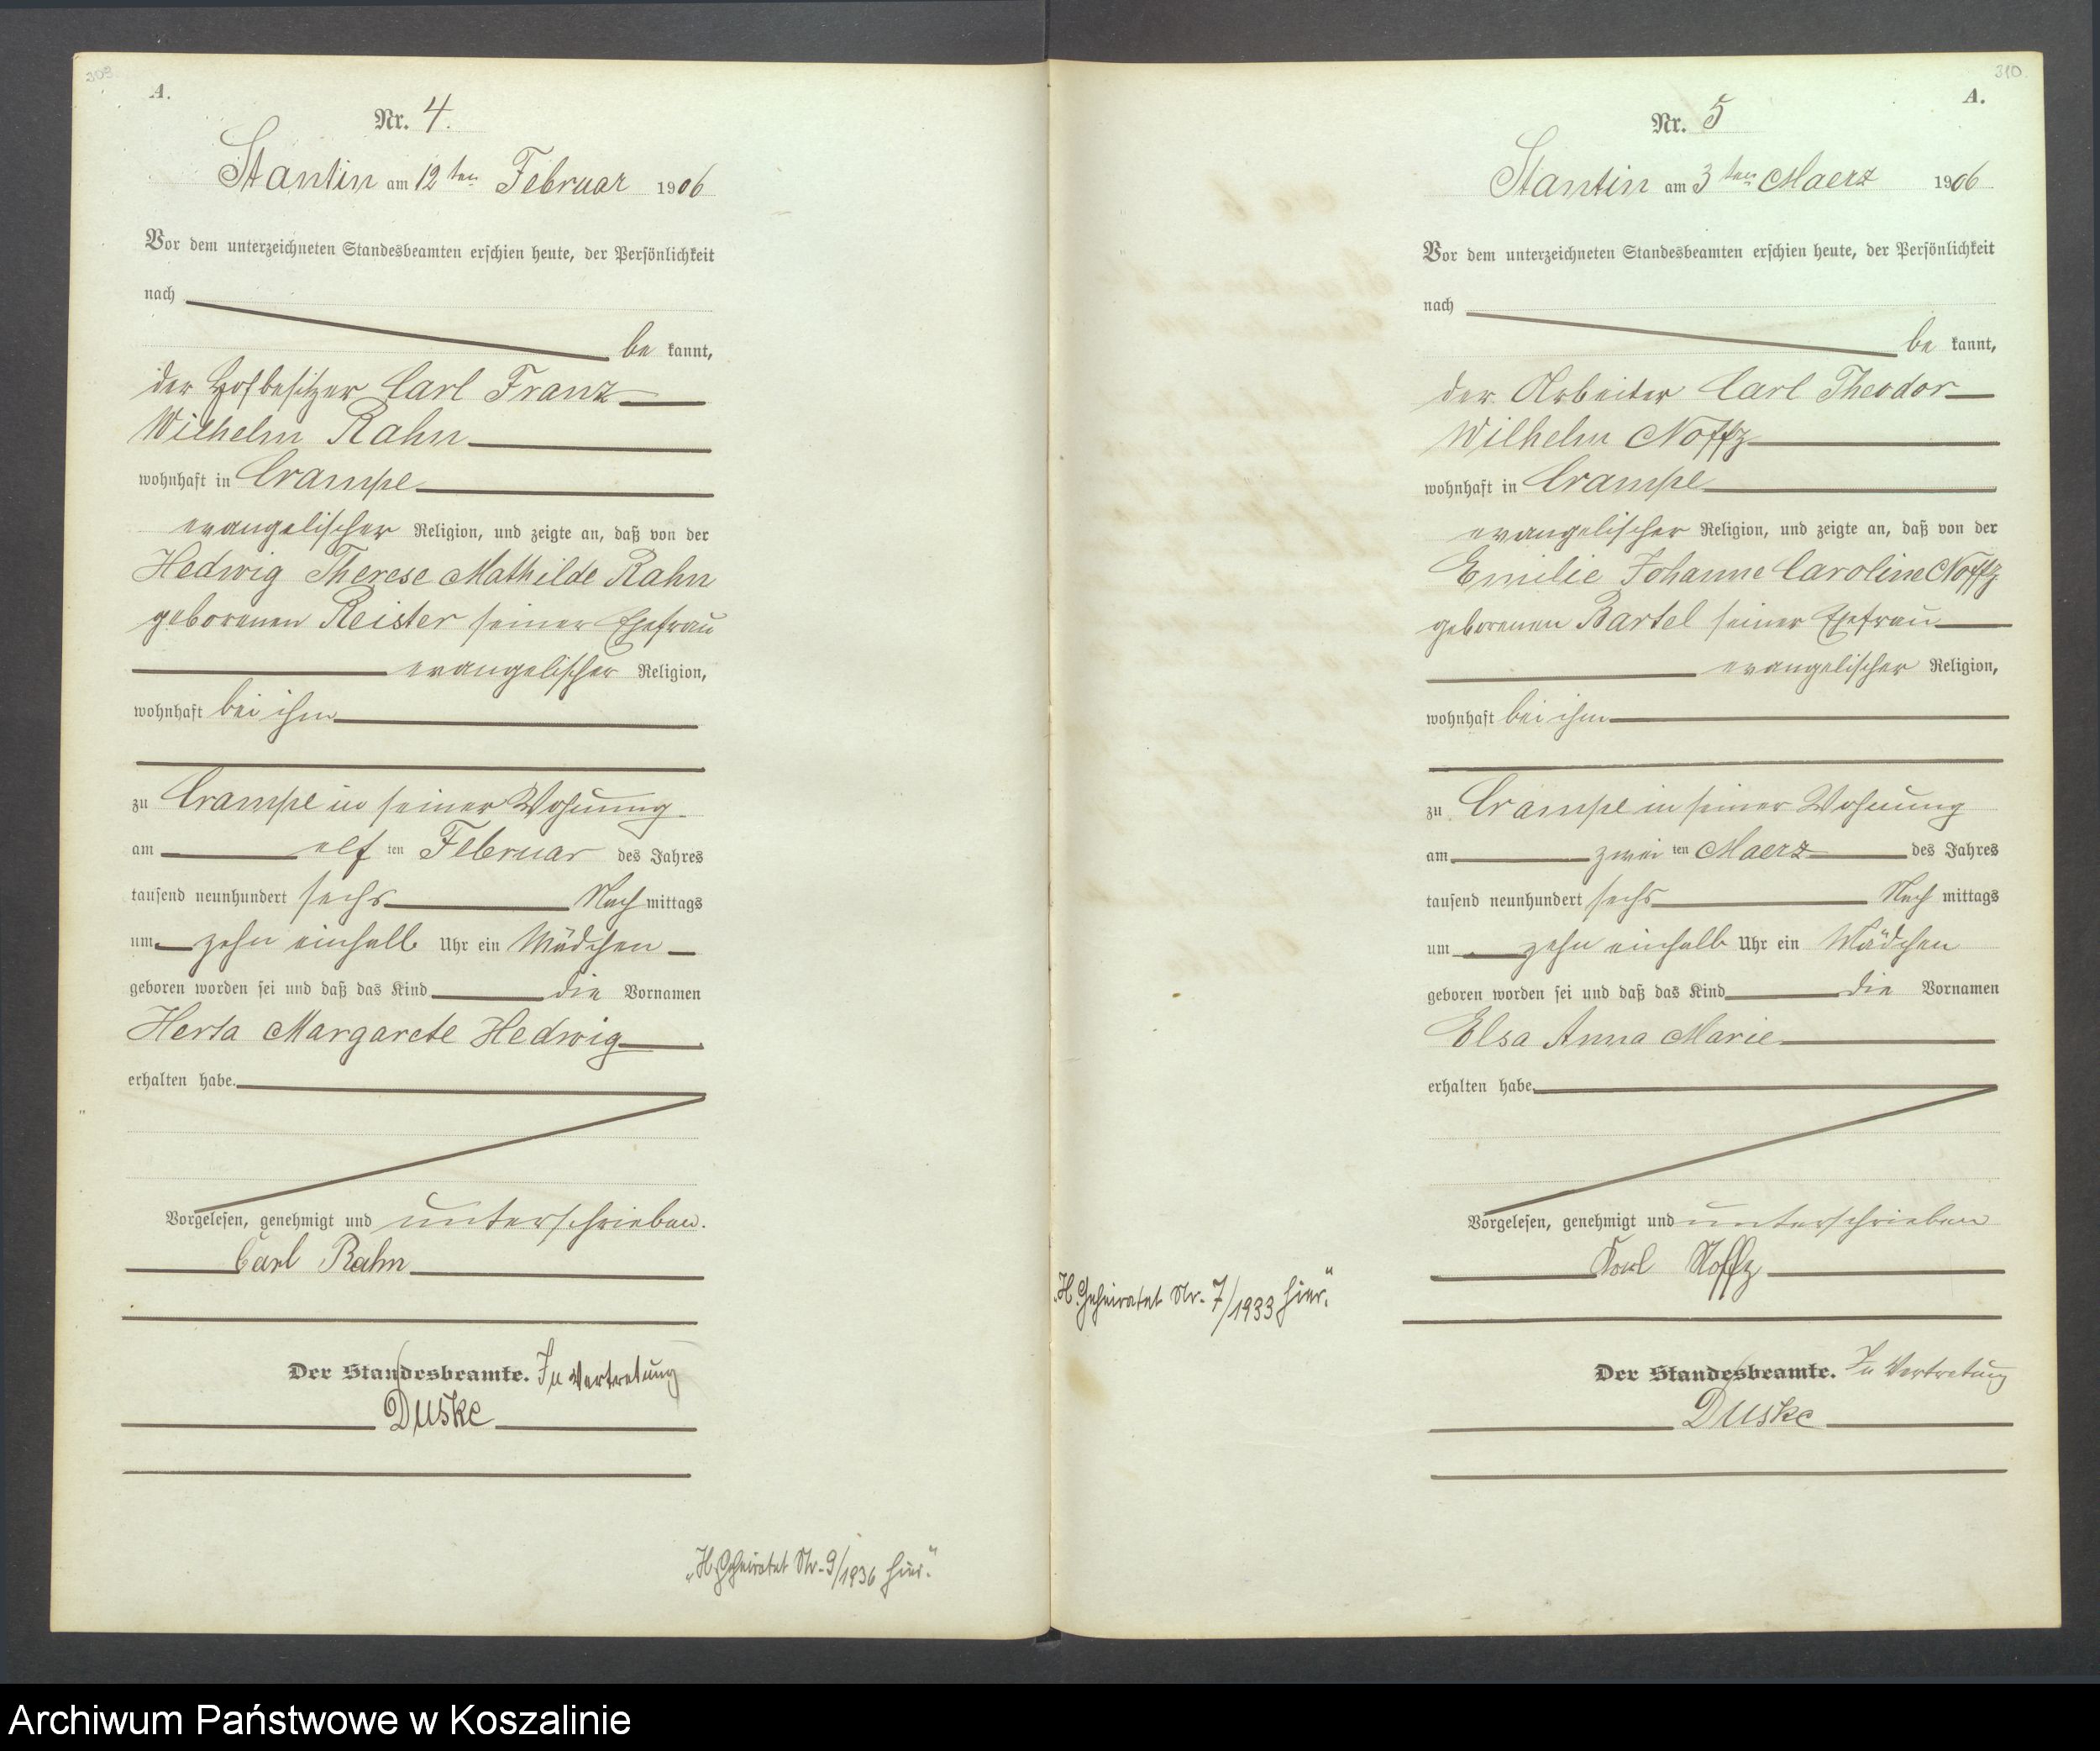 309
A.
Nr. 4.
Stantin am 12ten Februar 1906
Vor dem unterzeichneten Standesbeamten erschien heute, der Persönlichkeit
nach
be kannt,
der Hofbesitzer Carl Franz
Wilhelm Rahn
wohnhaft in Crampe
evangelischer Religion, und zeigte an, daß von der
Hedwig Therese Mathilde Rahn
geborenen Reister seiner Ehefrau
evangelischer Religion,
wohnhaft bei ihm
zu Crampe in seiner Wohnung
am elf ten Februar des Jahres
tausend neunhundert sechs Nach mittags
um zehn einhalb Uhr ein Mädchen
geboren worden sei und daß das Kind die Vornamen
Herta Margarete Hedwig
erhalten habe.
Vorgelesen, genehmigt und unterschrieben.
Carl Rahn
Der Standesbeamte. In Vertretung
Duske
„H. Geheiratet Nr. 9/1936 hier."
310
A.
Nr. 5
Stantin am 3ten Maerz 1906
Vor dem unterzeichneten Standesbeamten erschien heute, der Persönlichkeit
nach
be kannt,
der Arbeiter Carl Theodor
Wilhelm Noffz
wohnhaft in Crampe
evangelischer Religion, und zeigte an, daß von der
Emilie Johanne Caroline Noffz
geborenen Bartel seiner Ehefrau
evangelischer Religion,
wohnhaft bei ihm
zu Crampe in seiner Wohnung
am zwei ten Maerz des Jahres
tausend neunhundert sechs Nach mittags
um zehn einhalb Uhr ein Mädchen
geboren worden sei und daß das Kind die Vornamen
Elsa Anna Marie
erhalten habe.
Vorgelesen, genehmigt und unterschrieben
Karl Noffz
„H. Geheiratet Nr. 7/1933 hier."
Der Standesbeamte. In Vertretung
Duske
Archiwum Państwowe w Koszalinie